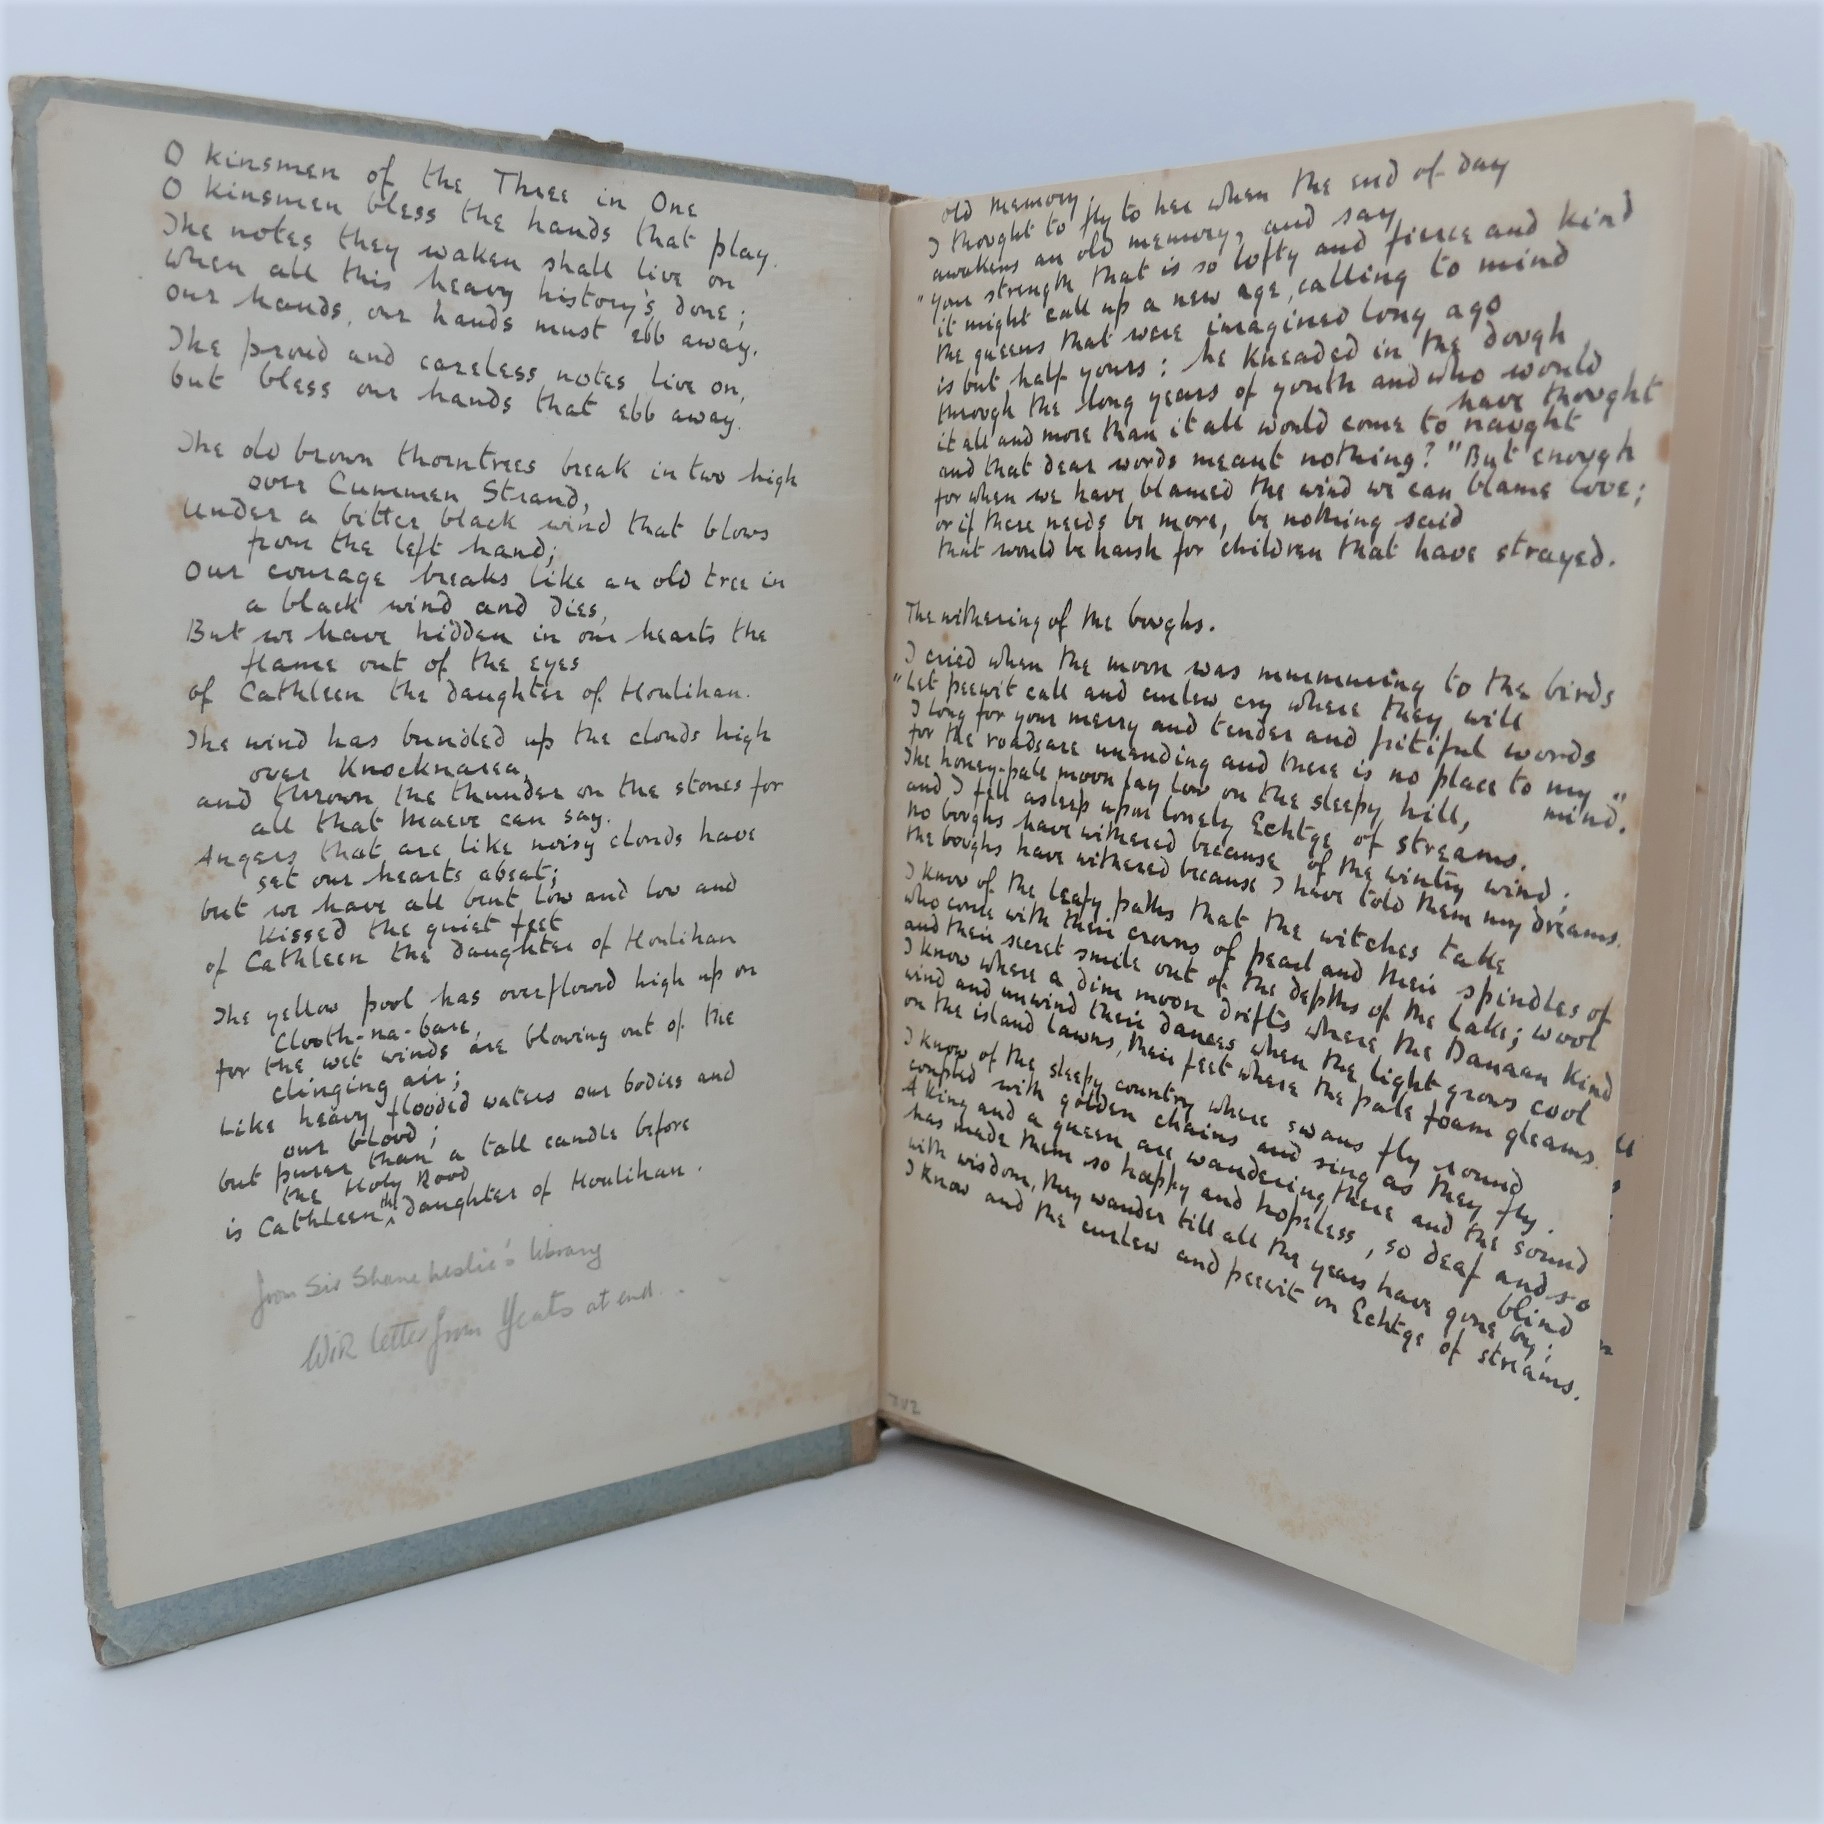 O kinsmen of the Three in One
O kinsmen bless the hands that play.
The notes they waken shall live on
when all this heavy history's done;
our hands, our hands must ebb away.
The proud and careless notes live on,
but bless our hands that ebb away.
The old brown thorntrees break in two high
over Cummen Strand,
under a bitter black wind that blows
from the left hand;
Our courage breaks like an old tree in
a black wind and dies,
But we have hidden in our hearts the
flame out of the eyes
of Cathleen the daughter of Houlihan.
The wind has bundled up the clouds high
over Knocknarea,
and thrown the thunder on the stones for
all that Maeve can say.
Angers that are like noisy clouds have
set our hearts abeat;
but we have all bent low and low and
kissed the quiet feet
of Cathleen the daughter of Houlihan
The yellow pool has overflowed high up on
Clooth-na-bare,
for the wet winds are blowing out of the
clinging air;
Like heavy flooded waters our bodies and
our blood;
but purer than a tall candle before
the Holy Rood
is Cathleen the daughter of Houlihan.
from Sir Shane Leslie's library
With letter from Yeats at end.
old memory.
I thought to fly to her when the end of day
awakens an old memory, and say
"your strength that is so lofty and fierce and kind
it might call up a new age, calling to mind
the queens that were imagined long ago
is but half yours: he kneaded in the dough
through the long years of youth and who would
have thought
it all and more than it all would come to naught
and that dear words meant nothing?" But enough
for when we have blamed the wind we can blame love;
or if there needs be more, be nothing said
that would be harsh for children that have strayed.
The withering of the boughs.
I cried when the moon was murmuring to the birds
"Let peewit call and curlew cry where they will
I long for your merry and tender and pitiful words
for the roads are unending and there is no place to my
mind."
The honey-pale moon lay low on the sleepy hill,
and I fell asleep upon lonely Echtge of streams.
No boughs have withered because of the wintry wind;
the boughs have withered because I have told them my dreams.
I know of the leafy paths that the witches take
who come with their crowns of pearl and their spindles of
wool
and their secret smile out of the depths of the lake;
I know where a dim moon drifts where the Danaan kind
wind and unwind their dances when the light grows cool
on the island lawns, their feet where the pale foam gleams.
I know of the sleepy country where swans fly round
coupled with golden chains and sing as they fly.
A king and a queen are wandering there and the sound
has made them so happy and hopeless, so deaf and so
blind
with wisdom, they wander till all the years have gone by;
I know and the curlew and peewit on Echtge of streams.